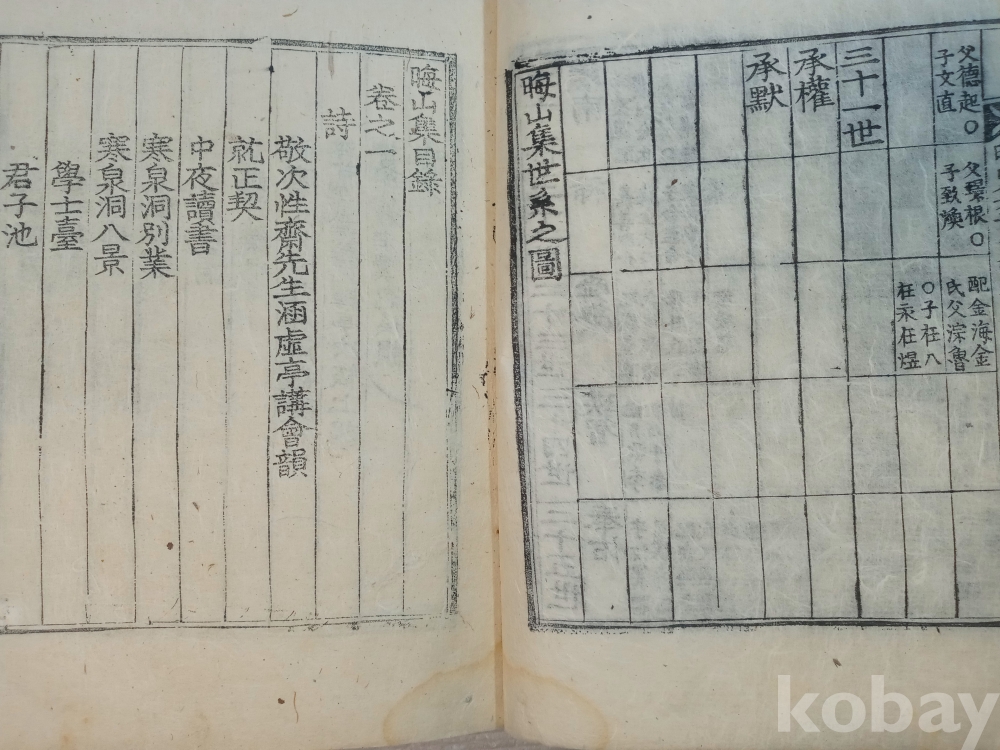 父德起○
子文直
父璟根○
子致煥
配金海金
氏父淙魯
○子在八
在永在煜
三十一世
承權
承默
晦山集世系之圖
晦山集目錄
卷之一
詩
敬次性齋先生涵虛亭講會韻
就正契
中夜讀書
寒泉洞別業
寒泉洞八景
學士臺
君子池
kobay